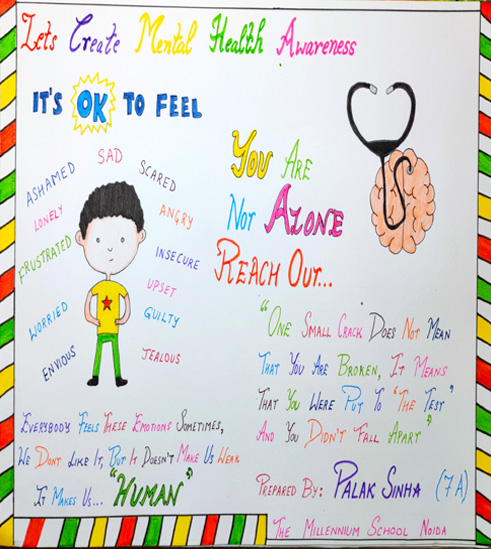 Lets Create Mental Health Awareness
IT'S OK TO FEEL
ASHAMED
SAD
SCARED
LONELY
ANGRY
FRUSTRATED
INSECURE
UPSET
WORRIED
GUILTY
ENVIOUS
JEALOUS
YOU ARE
NOT ALONE
REACH OUT...
"ONE SMALL CRACK DOES NOT MEAN
THAT YOU ARE BROKEN, IT MEANS
THAT YOU WERE PUT TO "THE TEST"
AND YOU DIDN'T FALL APART"
EVERYBODY FEELS THESE EMOTIONS SOMETIMES,
WE DONT LIKE IT, BUT IT DOESN'T MAKE US WEAK
IT MAKES US... "HUMAN"
PREPARED BY: PALAK SINHA (7A)
THE MILLENNIUM SCHOOL NOIDA